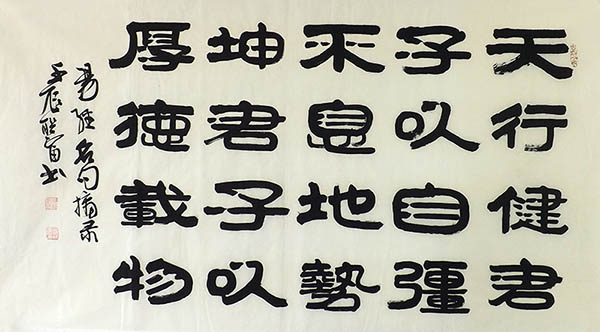 天行健君
子以自彊
不息地勢
坤君子以
厚德載物
易经名句摘录
壬辰书